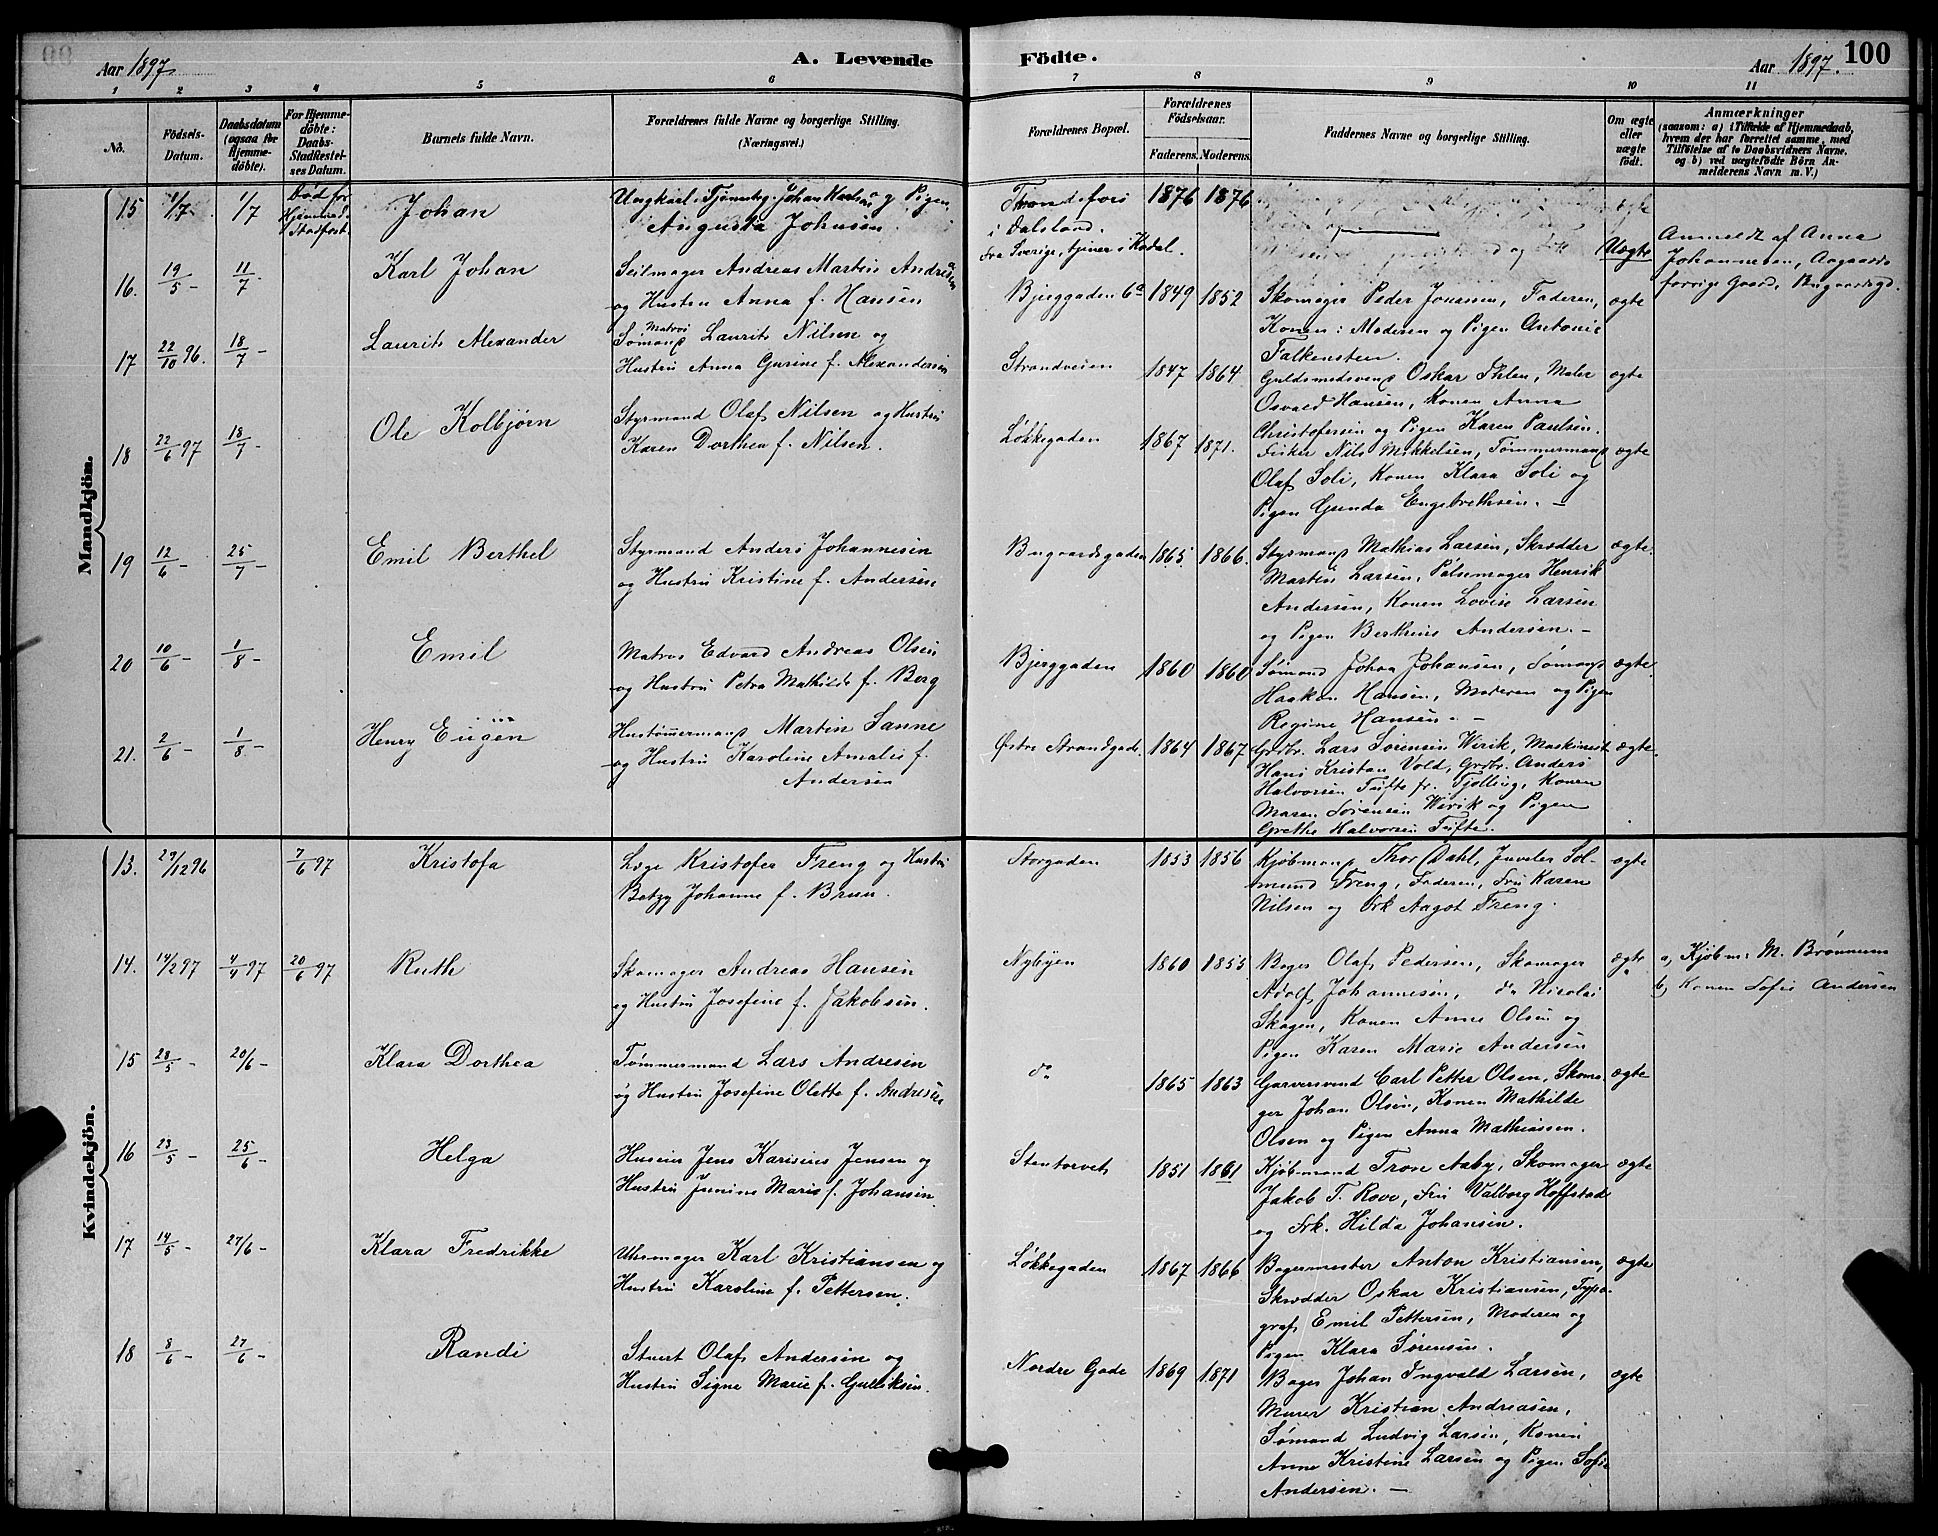 Aar 1897.
A. Levende
Födte.
Aar 1897.
100
1 2 3 4 5 6 7 8 9 10 11
No.
Födsels-
Datum.
Daabsdatum
(ogsaa for
Hjemme-
döbte).
For Hjemme-
döbte:
Daabs-
Stadfæstel-
ses Datum.
Barnets fulde Navn.
Forældrenes fulde Navne og borgerlige Stilling.
(Næringsvei.)
Forældrenes Bopæl.
Forældrenes
Födselsaar.
Faderens. Moderens.
Faddernes Navne og borgerlige Stilling.
Om ægte
eller
uægte
födt.
Anmærkninger
(saasom: a) i Tilfælde af Hjemmedaab,
hvem der har forrettet samme, med
Tilföielse af to Daabsvidners Navne,
og b) ved uægtefödte Börn An-
melderens Navn m. V.)
Mandkjön.
15 1/7 - 1/7 Död før
Hjemmed.
Stadfæst.
Johan
Ungkarl, Johan Karlsen og Pigen
Augusta Johnsen.
i Dalsland.
fra Sverige, tjener i Kodal.
1876 1876
Uægte
Anmeldt af Anna
Johannesen, Aagaards
forrige Gaard, Bugaardsgd.
16. 19/5 - 11/7
Karl Johan
Seilmager Andreas Martin Andresen
og Hustru Anna f. Hansen
Bjerggaden 6a 1849 1852
Skomager Peder Jonssen, Faderen,
Konen: Moderen og Pigen Antonie
Falkensteen.
ægte
17 22/10 96. 18/7 -
Laurits Alexander
Matros
Sømand Laurits Nilsen og
Hustru Anna Gurine f. Alexandersen
Strandveien 1847 1864
Guldsmedsvend Oskar Ihlen, Maler
Osvald Hansen, Konen Anna
Christofersen og Pigen Karen Paulsen.
ægte
18 22/6 97 18/7 -
Ole Kolbjørn
Styrmand Olaf Nilsen og Hustru
Karen Dorthea f. Nilsen.
Løkkegaden 1867 1871.
Fisker Nils Mikkelsen, Tømmermand
Olaf Soli, Konen Klara Soli og
Pigen Gunda Engebrethsen. —
ægte
19 12/6 - 25/7 -
Emil Berthel
Styrmand Anders Johannesen
og Hustru Kristine f. Andersen.
Bugaardsgaden 1865 1866.
Styrmand Mathias Larsen, Skrædder
Martin Larsen, Pølsemager Henrik
Andersen, Konen Lovise Larsen
og Pigen Berthine Andersen. —
ægte.
20 10/6 - 1/8 -
Emil
Matros Edvard Andreas Olsen
og Hustru Petra Mathilde f. Berg
Bjerggaden 1860 1860
Sømand Johan Johansen, Sømand
Haakon Hansen, Moderen og Pigen
Regine Hansen. —
ægte.
21. 2/6 - 1/8 -
Henry Eugen
Hustømermand Martin Sanne
og Hustru Karoline Amalie f.
Andersen
Østre Strandgade. 1864 1867
Grdbr. Lars Sørensen Wirik, Maskinist
Hans Kristian Vold, Grdbr. Anders
Halvorsen Tufte fr. Tjølling, Konen
Maren Sørensen Wirik og Pigen
Grethe Halvorsen Tufte.
ægte.
Kvindekjön.
13. 29/12 96 7/6 97
Kristofa
Læge Kristofer Freng og Hustru
Betzy Johanne f. Bruun.
Storgaden 1853 1856
Kjøbmand Thor Dahl, Juveler Sol-
mund Freng, Faderen, Fru Karen
Nilsen og Frk Aagot Freng.
ægte
14. 14/2 97 4/4 97 20/6 97
Ruth
Skomager Andreas Hansen
og Hustru Josefine f. Jakobsen.
Nybyen 1860 1853
Bager Olaf Pedersen, Skomager
Adolf Johannesen, do Nicolai
Skogen, Konen Anne Olsen og
Pigen Karen Marie Andersen
ægte
a, Kjøbm: M. Brønnum
b, Konen Sofie Andersen
15 28/5 - 20/6 -
Klara Dorthea
Tømmermand Lars Andresen
og Hustru Josefine Olette f. Andresen
do 1865 1863
Garversvend Carl Petter Olsen, Skoma-
ger Johan Olsen, Konen Mathilde
Olsen og Pigen Anna Mathiassen.
ægte
16 23/5 - 25/6 -
Helga
Huseier Jens Karinius Jensen og
Hustru Jenine Marie f. Johansen.
Stentorvet 1851 1861
Kjøbmand Trose Aaby, Skomager
Jakob T. Rove, Fru Valborg Hoffstad
og Frk. Hilda Johansen.
ægte
17 14/5 - 27/6 -
Klara Fredrikke
Uhrmager Karl Kristiansen og
Hustru Karoline f. Pettersen.
Løkkegaden 1867 1866
Bagermester Anton Kristiansen,
Skrædder Oskar Kristiansen, Typo-
graf Emil Pettersen, Moderen og
Pigen Klara Sørensen.
ægte
18 8/6 - 27/6 -
Randi
Stuert Olaf Andersen og
Hustru Signe Marie f. Gulliksen.
Nordre Gade 1869 1871
Bager Johan Ingvald Larsen,
Murer Kristian Andreasen,
Sømand Ludvig Larsen, Konen
Anne Kristine Larsen og Pigen Sofie
Andersen. —
ægte